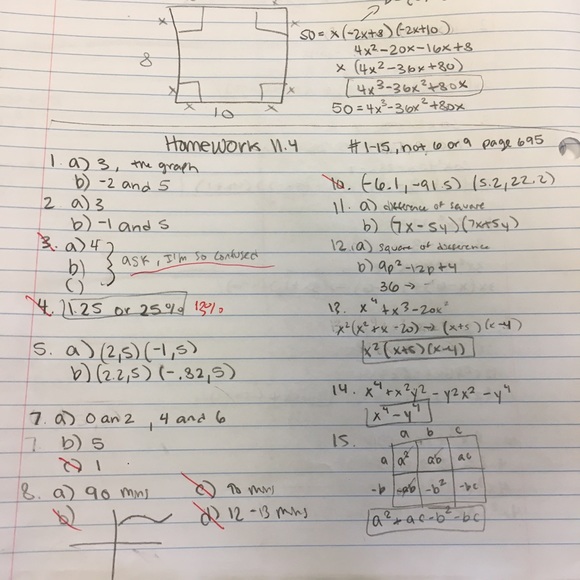 x x
8
x x
x x
10
50 = x(-2x+8)(-2x+10)
4x²-20x-16x+8
x (4x²-36x+80)
4x³-36x²+80x
50 = 4x³-36x²+80x
Homework 11.4 #1-15, not 6 or 9 page 695
1. a) 3, the graph
b) -2 and 5
2 a) 3
b) -1 and 5
3. a) 4
b) ask, I'm so confused
c)
4. 1.25 or 25% 12%
5. a) (2,5) (-1,5)
b) (2.2,5) (-.82,5)
7. a) 0 an 2, 4 and 6
7. b) 5
c) 1
8. a) 90 mins
b)
c) 70 mins
d) 12-13 mins
10. (-6.1, -91.5) (5.2, 22.2)
11. a) difference of square
b) (7x-5y)(7x+5y)
12. a) square of difference
b) 9p²-12p+4
36 → -
13. x⁴+x³-20x²
x²(x²+x-20) → (x+5)(x-4)
x²(x+5)(x-4)
14. x⁴+x²y²-y²x²-y⁴
x⁴-y⁴
15.
a b c
a a² ab ac
-b -ab -b² -bc
a²+ac-b²-bc